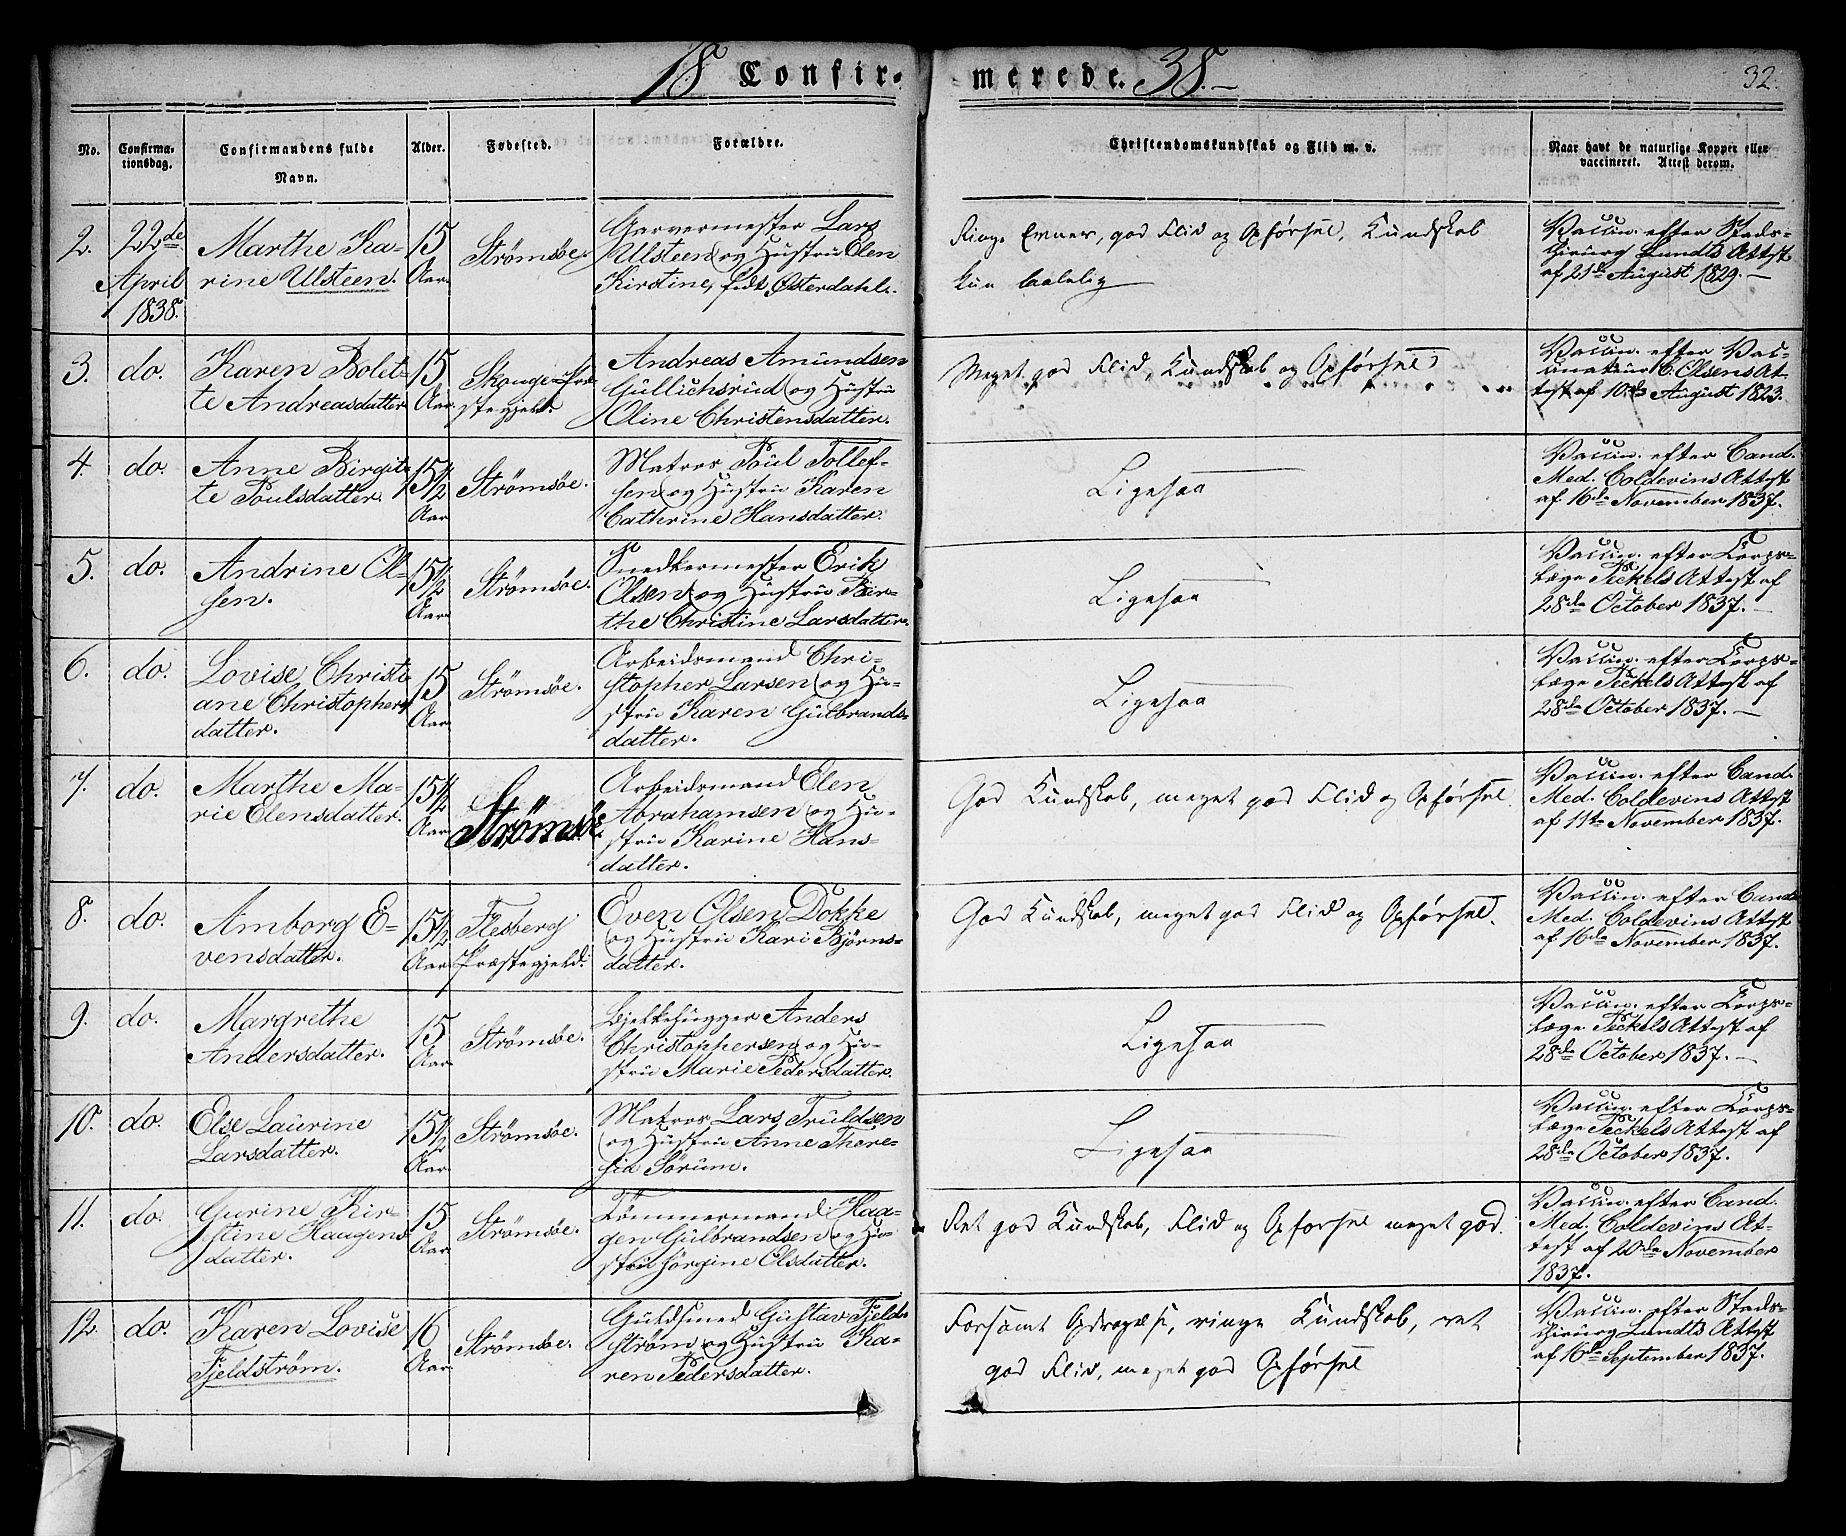 18 Confir- merede. 38.
32.
No.
Confirma-
tionsdag.
Confirmandens fulde
Navn.
Alder.
Fødested.
Forældre.
Christendomskundskab og Flid m. v.
Naar havt de naturlige Kopper eller
vaccineret. Attest derom.
2. 22de April 1838. Marthe Ka-
rine Ulsteen.
15 Aar
Strømsøe.
Garvermester Lars
Ulsteen og Hustru Elen
Kirstine, født Østerdahl.
Ringe Evner, god Flid og Opførsel, Kundskab
kun taalelig
Vaccin. efter Stads-
chirurg Lundts Attest
af 21de August 1829.
3. do. Karen Bolet-
te Andreasdatter
15 Aar.
Skouger Præ-
stegjeld.
Andreas Amundsen
Gullichsrud og Hustru
Oline Christensdatter.
Meget god Flid, Kundskab og Opførsel
Vaccin. efter Vac-
cinateur C. Olsens At-
test af 10de August 1823.
4. do. Anne Birgit-
te Poulsdatter.
15 1/2 Aar
Strømsøe.
Matros Poul Tollef-
sen og Hustru Karen
Cathrine Hansdatter.
Ligesaa
Vaccin. efter Cand.
Med. Coldevins Attest
af 16de November 1837.
5. do. Andrine Ol-
sen.
15 1/2 Aar
Strømsøe.
Snedkermester Erik
Olsen og Hustru Bir-
the Christine Larsdatter.
Ligesaa
Vaccin. efter Corps-
læge Peckels Attest af
28de October 1837.
6. do. Lovise Christi
ane Christophers
datter.
15 Aar
Strømsøe.
Arbeidsmand Chri-
stopher Larsen og Hu-
stru Karen Gulbrands-
datter.
Ligesaa
Vaccin. efter Corps-
læge Peckels Attest af
28de October 1837.
7. do. Marthe Ma-
rie Elensdatter.
15 1/2 Aar
Strømsøe
Arbeidsmand Elen
Abrahamsen og Hu-
stru Karine Hans-
datter.
God Kundskab, meget god Flid og Opførsel
Vaccin. efter Cand.
Med. Coldevins Attest
af 11te November 1837.
8. do. Amborg E-
vensdatter.
15 1/2 Aar
Flesberg
Præstegjeld.
Even Olsen Dokke
og Hustru Kari Bjørns-
datter.
God Kundskab, meget god Flid og Opførsel.
Vaccin. efter Cand.
Med. Coldevins Attest
af 16de November 1837.
9. do. Margrethe
Andersdatter.
15 Aar
Strømsøe.
Bjelkehugger Anders
Christophersen og Hu-
stru Marie Pedersdatter.
Ligesaa
Vaccin. efter Corps-
læge Peckels Attest af
28de October 1837.
10. do. Else Laurine
Larsdatter.
15 1/2 Aar
Strømsøe.
Matros Lars Truldsen
og Hustru Anne Thore-
sia Sørum.
Ligesaa
Vaccin. efter Corps-
læge Peckels Attest af
28de October 1837.
11. do. Gurine Kir-
stine Haagens
datter.
15 Aar.
Strømsøe.
Tømmermand Haa-
gen Gulbrandsen og Hu-
stru Jørgine Olsdatter.
Ret god Kundskab, Flid og Opførsel meget god.
Vaccin. efter Cand.
Med. Coldevins At-
test af 20de November
1837.
12. do. Karen Lovise
Fjeldstrøm.
16 Aar.
Strømsøe.
Guldsmed Gustav Fjeld-
strøm og Hustru Ka-
ren Pedersdatter.
Forsømt Opdragelse, ringe Kundskab, ret
god Flid, meget god Opførsel
Vaccin. efter Stads-
chirurg Lundts Attest
af 16de September 1837.